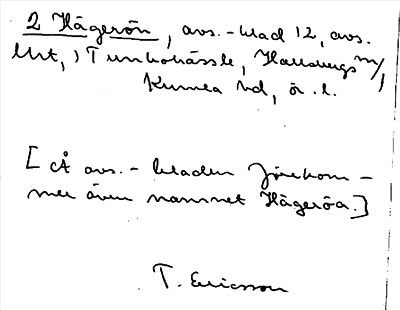 2 Hägerön, avs.-blad 12, avs.
Urt, i Tunbohässle, Hallsbergs m/,
Kumla hd, ör. l.
[Å avs.-bladen förekom-
mer även namnet Hägeröa.]
T. Ericsson